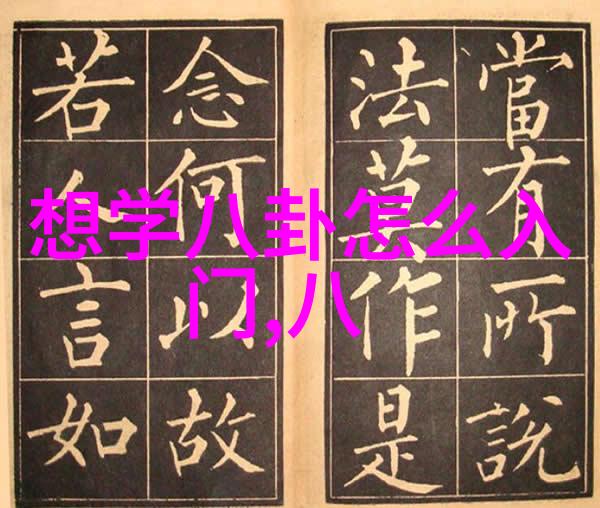 當有所說
法莫作是
念何以故
若人言如
想学八卦怎么入
门,八